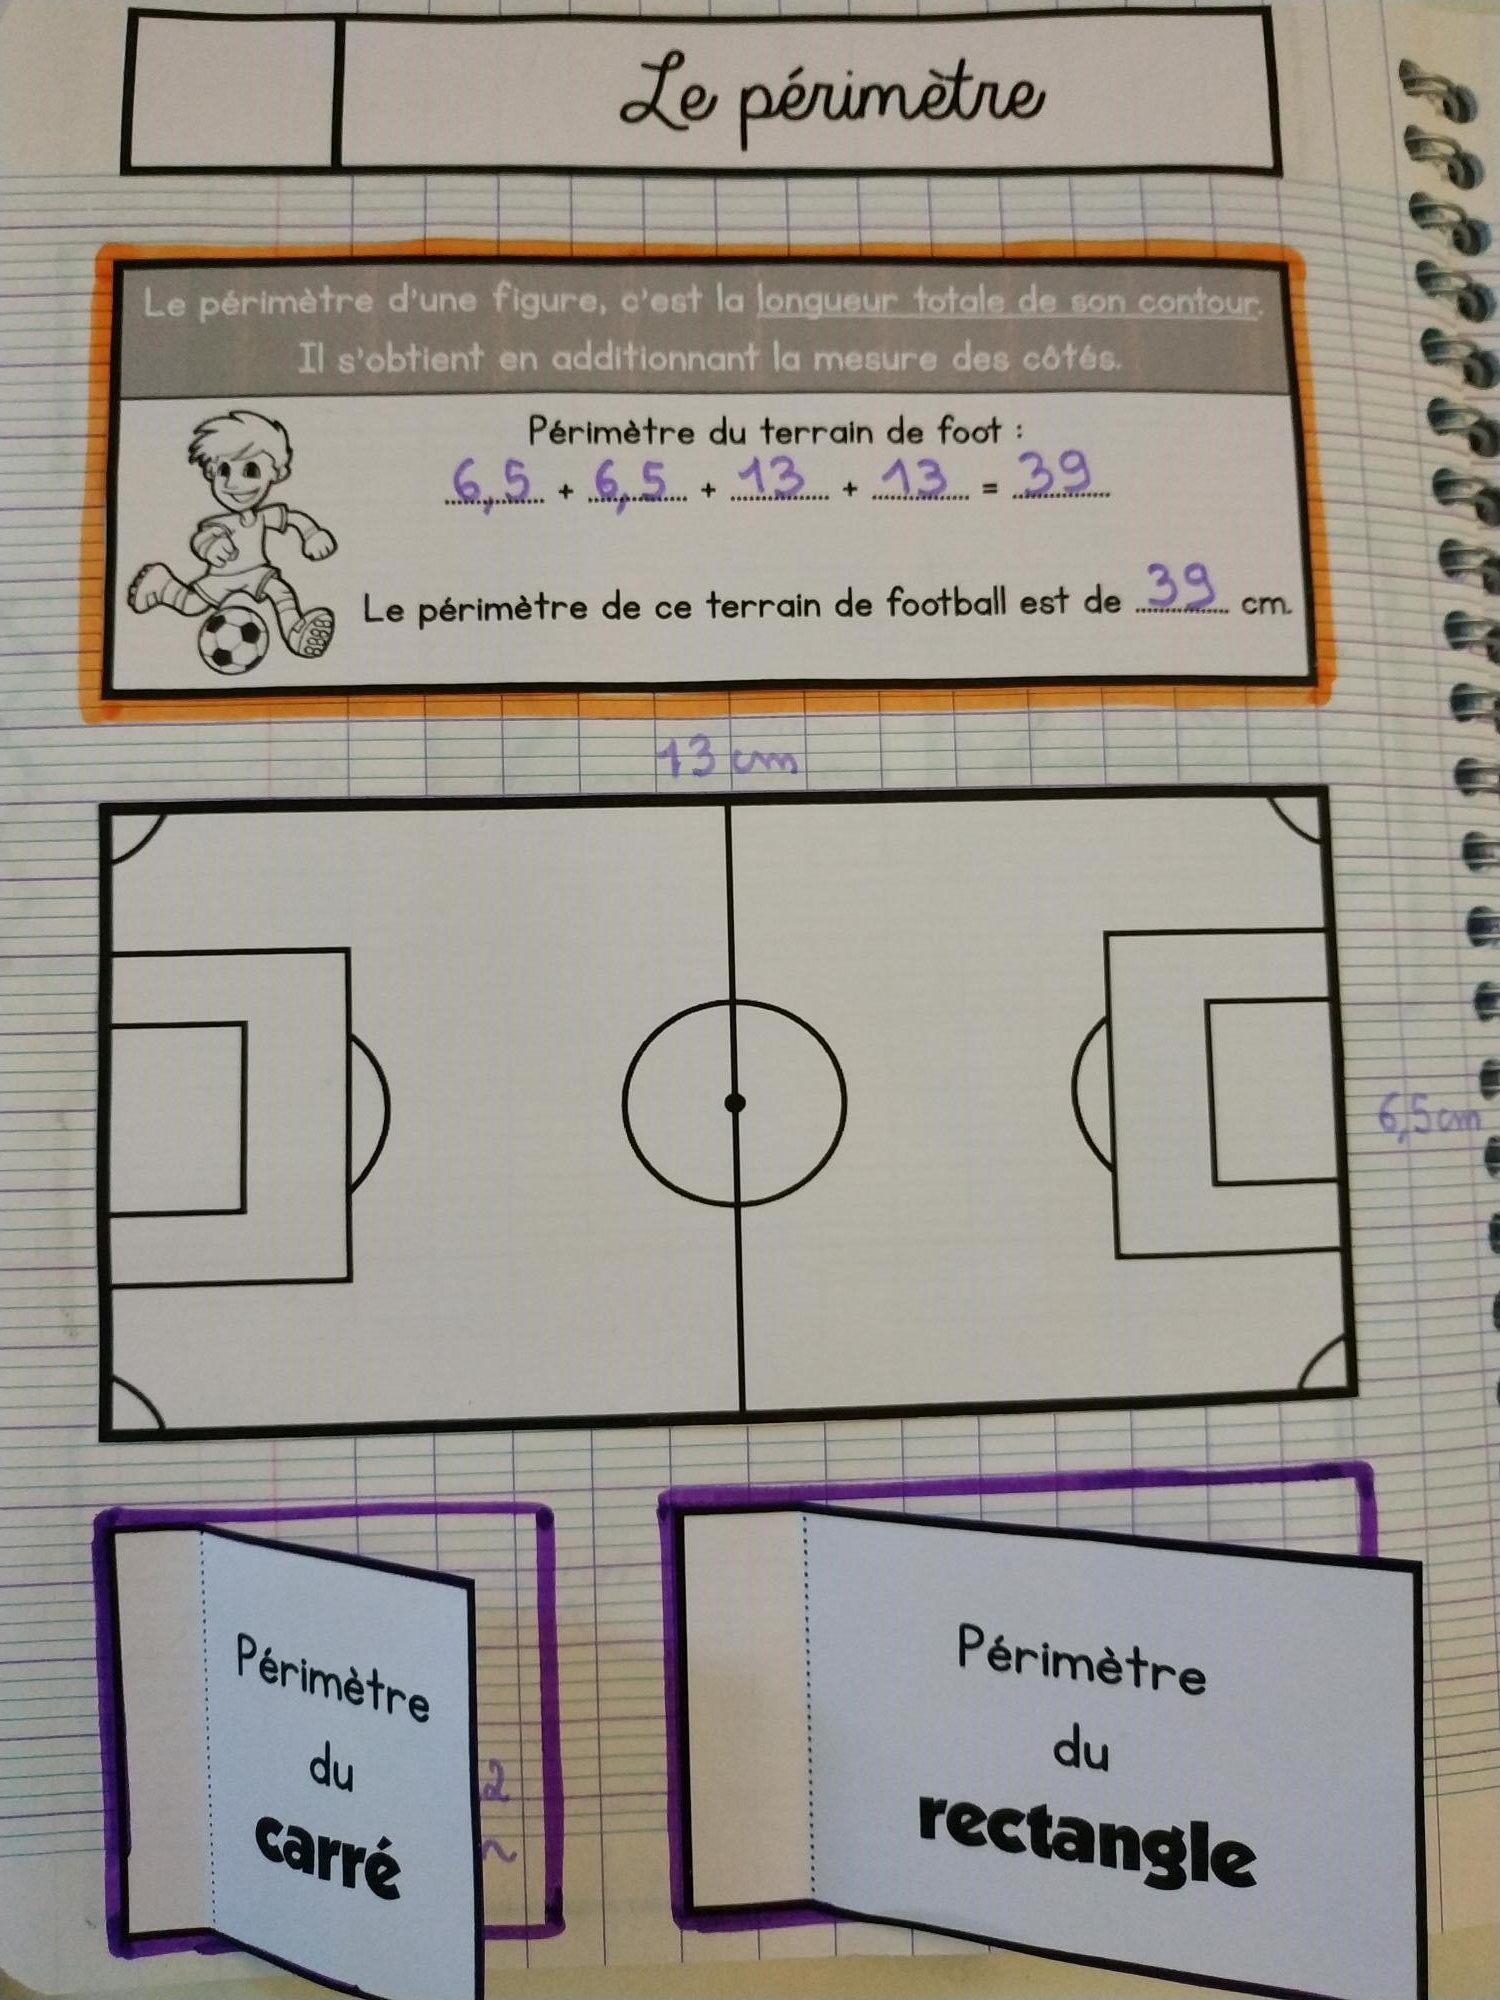 Le périmètre
Le périmètre d'une figure, c'est la longueur totale de son contour.
Il s'obtient en additionnant la mesure des côtés.
Périmètre du terrain de foot :
6,5 + 6,5 + 13 + 13 = 39
Le périmètre de ce terrain de football est de 39 cm.
13 cm
6,5 cm
Périmètre
du
carré
2
Périmètre
du
rectangle